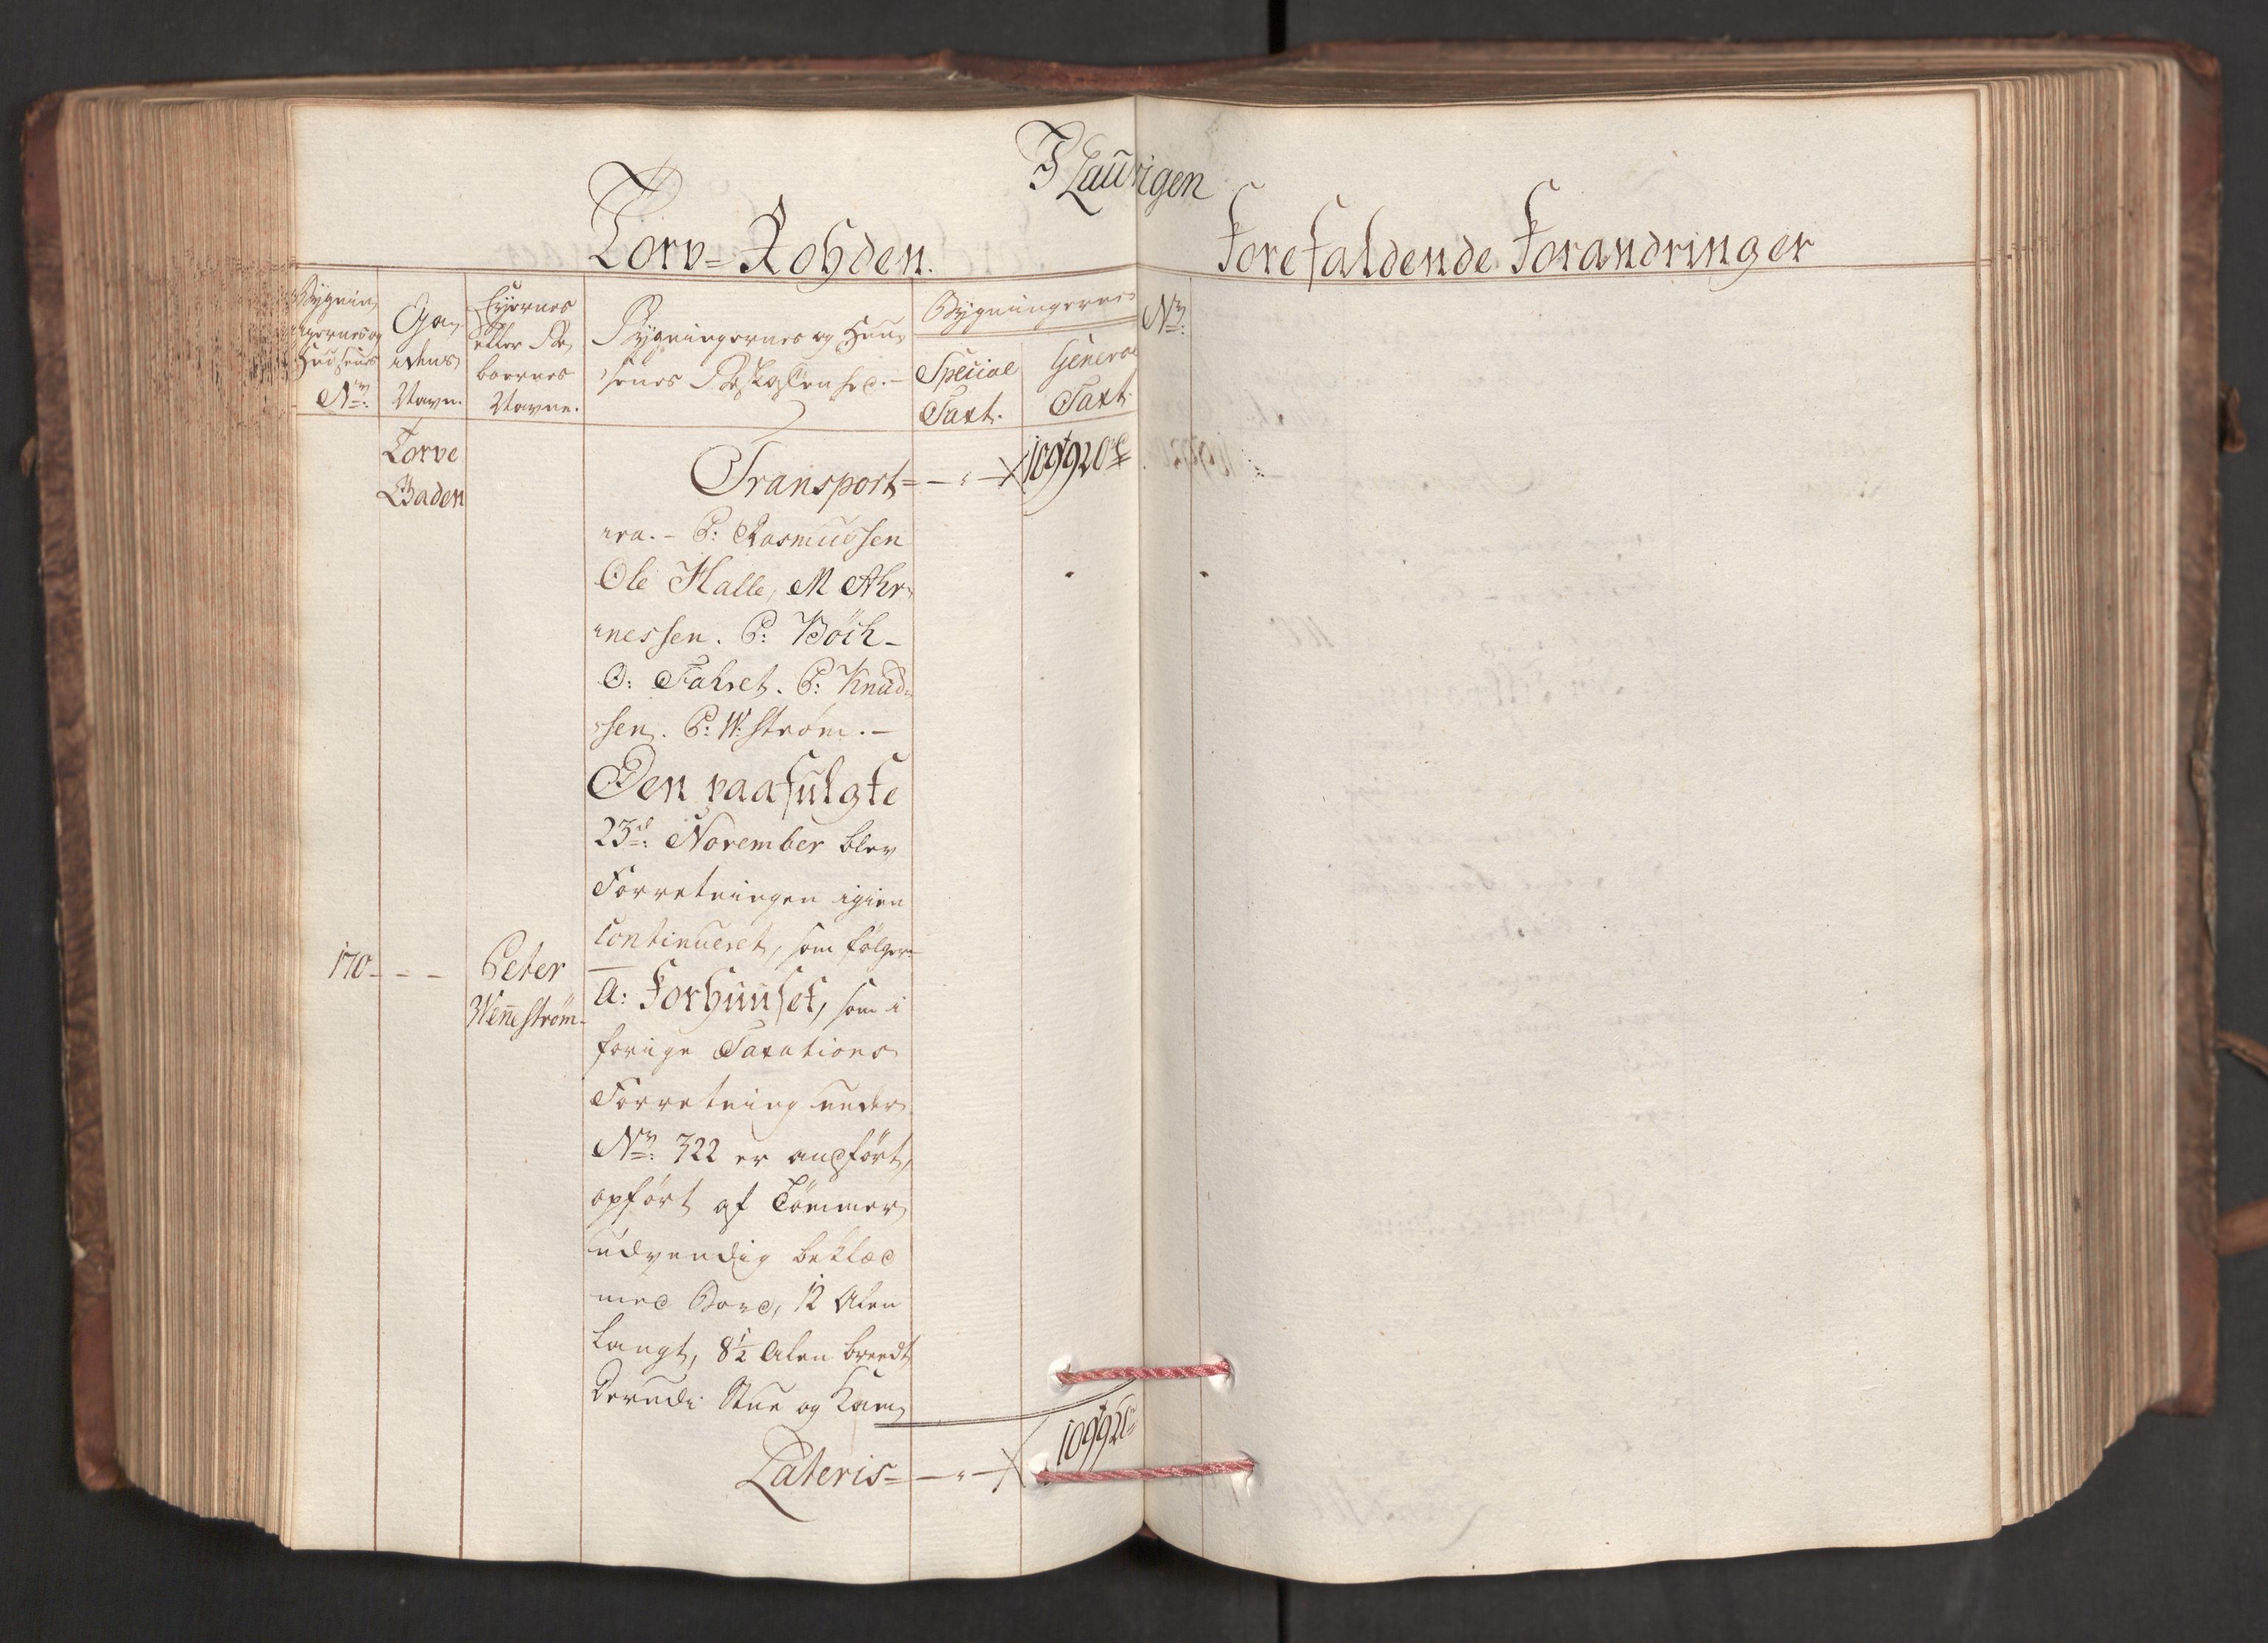 I Laurvigen
Torv-Rohden.
Forefaldende Forandringer
Bygnin-
gernes og
Huusenes
No:
Ga-
dens
Navn.
Eyernes
eller Be-
boernes
Navne.
Bygningernes og Huu-
senes Beskaffenhed.-
Bygningernes
Special
Taxt.
General
Taxt.
No:
Torve
Gaden
Transport= 109920
P: Rasmussen
Ole Halle, M Ahr-
nessen. P: Böch-
O: Fahret. P: Knud-
sen. P: W: ström.-
Den paafulgte
23de: November blev
Forretningen igien
Continueret, som følger
170
Peter
Wenneström
a: Forhuuset, som i
forige Taxations
Forretning under
No: 322 er anført,
opført af Tömmer
udvendig beklæd
med Bord, 12 Alen
langt, 8½ Alen breedt
Derudi Stue og Kam-
Lateris= 109920